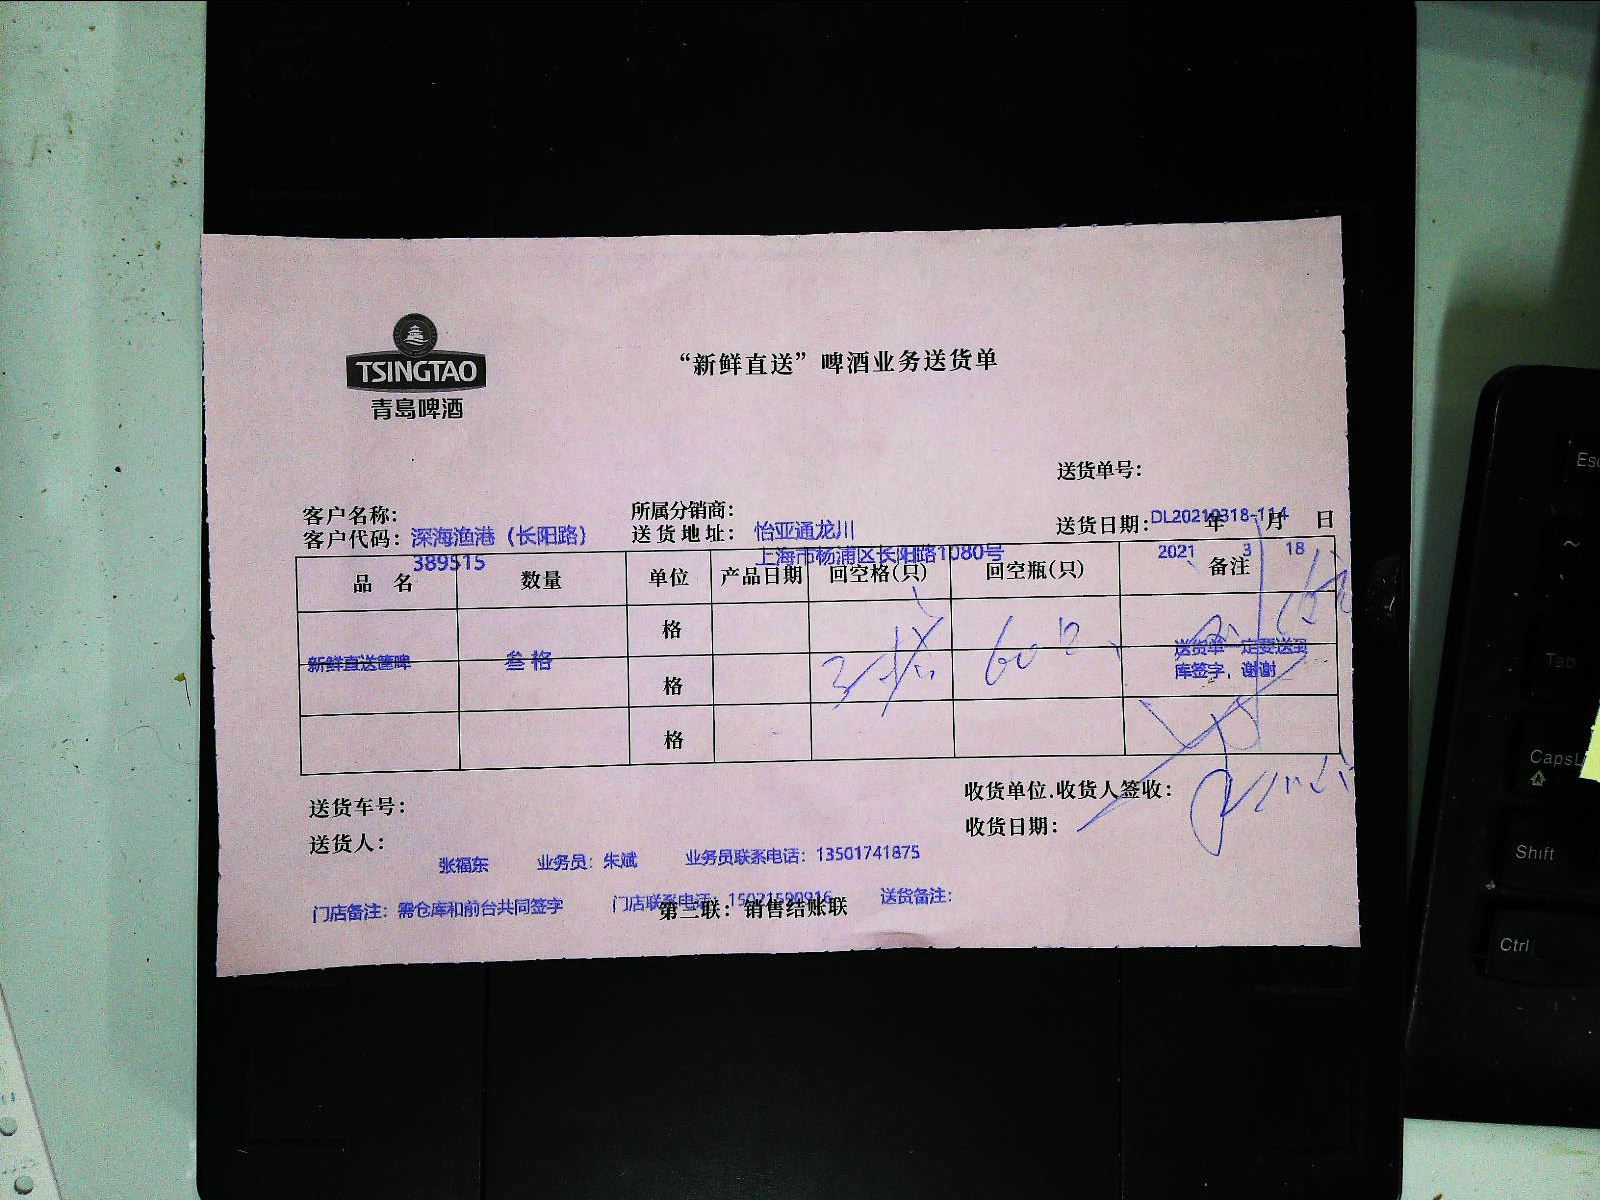 TSINGTAO
青岛啤酒
“新鲜直送”啤酒业务送货单
送货单号：
DL20210318-114
客户名称： 深海渔港（长阳路）
所属分销商： 怡亚通龙川
送货日期： 2021 年 3 月 18 日
客户代码： 389515
送货地址： 上海市杨浦区长阳路1080号
品 名 数量 单位 产品日期 回空格(只) 回空瓶(只) 备注
格
新鲜直送筐啤 叁格 格 3格 60只 送货单一定要送到
库签字，谢谢
格
送货车号：
收货单位.收货人签收：
送货人： 张福东
收货日期：
业务员：朱斌 业务员联系电话：13501741875
门店备注：需仓库和前台共同签字 门店联系电话： 送货备注：
第三联：销售结账联
Esc
~
Tab
CapsL
Shift
Ctrl